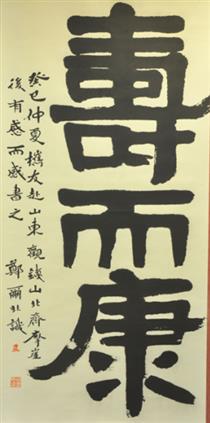 壽而康
癸巳仲夏携友赴山東觀鐵山北齊摩崖
後有感而感書之 鄭爾 識